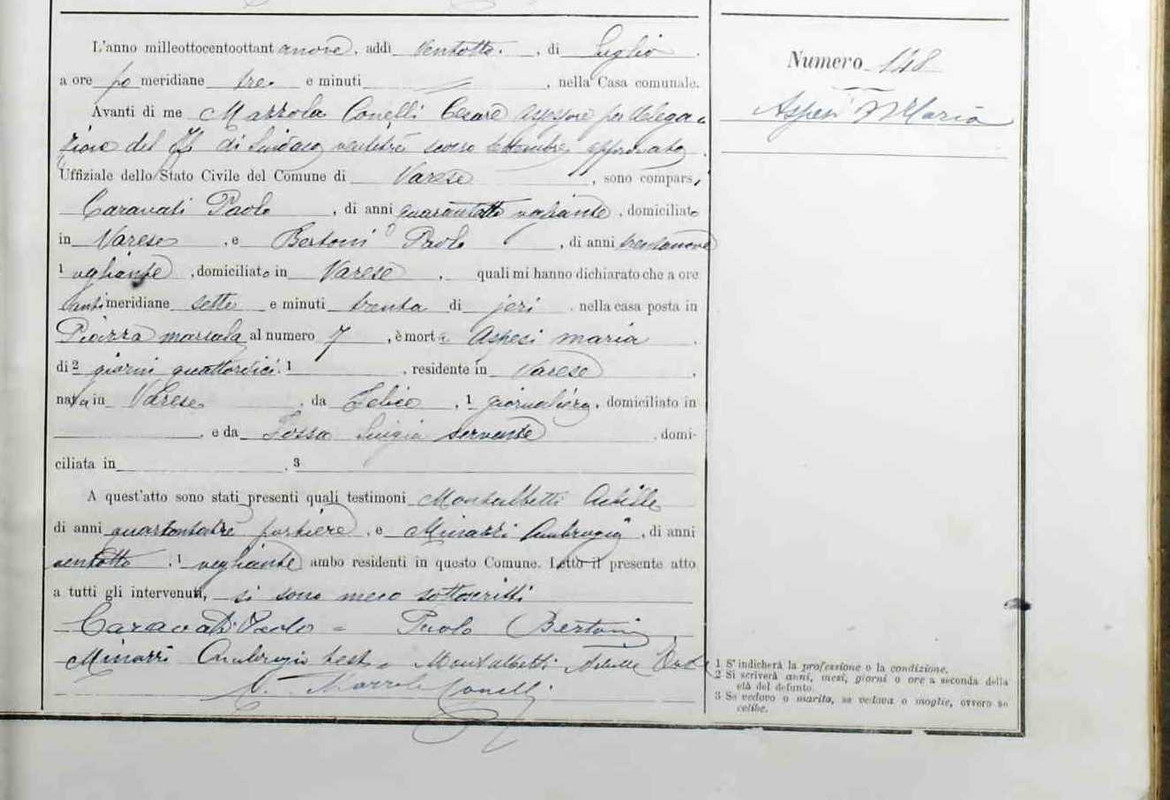 L'anno milleottocentoottantanove, addi ventotto, di Luglio
a ore po meridiane tre e minuti =, nella Casa comunale.
Avanti di me Mazzola Conelli Cesare assessore per delega=
zione del di Sindaco ventitre scorso settembre approvata
Uffiziale dello Stato Civile del Comune di Varese, sono comparsi
Caravati Paolo, di anni quarantotto vegliante, domiciliato
in Varese, e Bertoni Paolo, di anni trentanove
1 vegliante, domiciliato in Varese, quali mi hanno dichiarato che a ore
antimeridiane sette e minuti trenta di jeri, nella casa posta in
Piazza marsala al numero 7, è morta Aspesi maria
di 2 giorni quattordici 1, residente in Varese
nata in Varese, da Felice, 1 giornaliero, domiciliato in
, e da Fossa Luigia servente, domi-
ciliata in, 3
A quest'atto sono stati presenti quali testimoni Montalbetti Achille
di anni quarantatre portiere, e Minazzi Ambrogio, di anni
ventotto, 1 vegliante ambo residenti in questo Comune. Letto il presente atto
a tutti gli intervenuti, si sono meco sottoscritti
Caravati Paolo = Paolo Bertoni
Minazzi Ambrogio test = Montalbetti Achille
C. Mazzola Conelli
Numero 148
Aspesi Maria
1 S'indicherà la professione o la condizione.
2 Si scriverà anni, mesi, giorni o ore a seconda della
età del defunto.
3 Se vedovo o marito, se vedova o moglie, ovvero se
celibe.